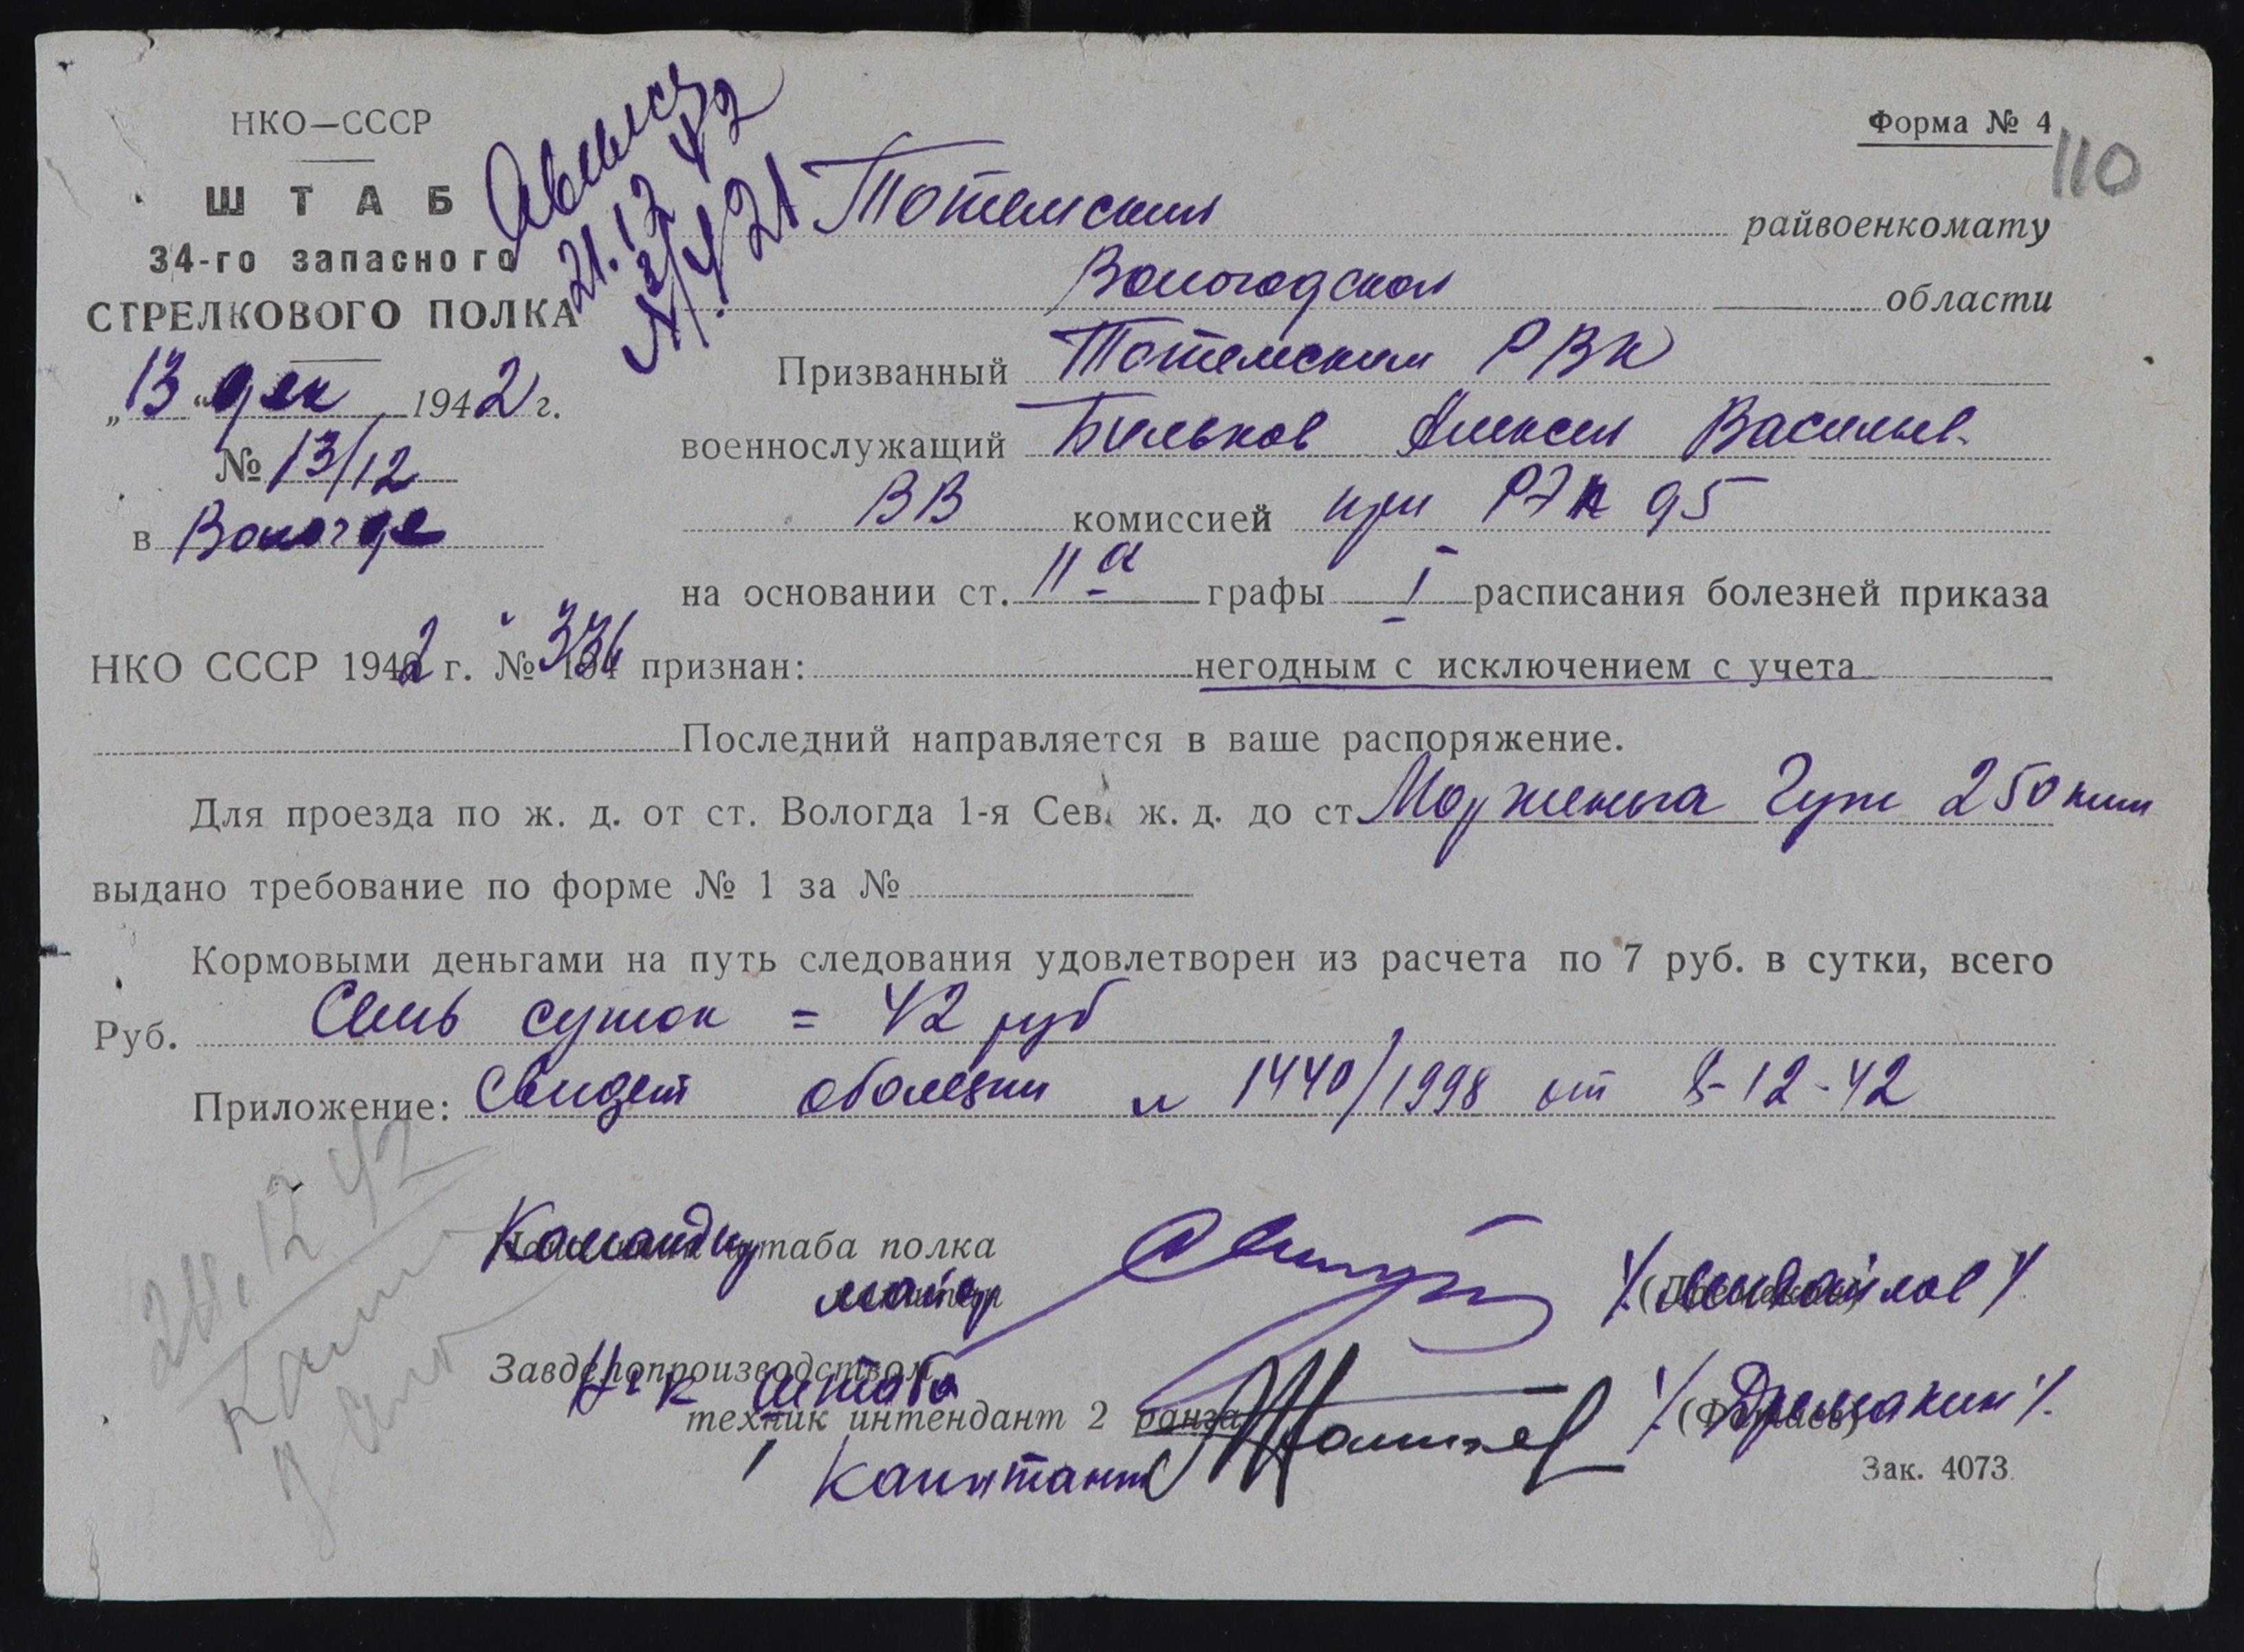 НКО—СССР
Форма № 4
110
ШТАБ
34-го запасного
СТРЕЛКОВОГО ПОЛКА
„13“ дек 1942 г.
№ 13/12
в Вологде
21.12 42
Тотемский райвоенкомату
Вологодской области
Призванный Тотемским РВК
военнослужащий Бильков Алексей Васильев.
ВВ комиссией при РЭП 95
на основании ст. 11а графы I расписания болезней приказа
НКО СССР 1942 г. № 336 признан: негодным с исключением с учета
Последний направляется в ваше распоряжение.
Для проезда по ж. д. от ст. Вологда 1-я Сев. ж. д. до ст Морженга Гуж 250 клм
выдано требование по форме № 1 за №
Кормовыми деньгами на путь следования удовлетворен из расчета по 7 руб. в сутки, всего
Руб. Семь суток = 42 руб
Приложение: Свидет оболезни № 1440/1998 от 8-12-42
21.12 42
Командир штаба полка
майор /Михайлов/
Завделопроизводством
Н-к штаба
техник интендант 2 ранга
капитан /Дремакин/.
Зак. 4073